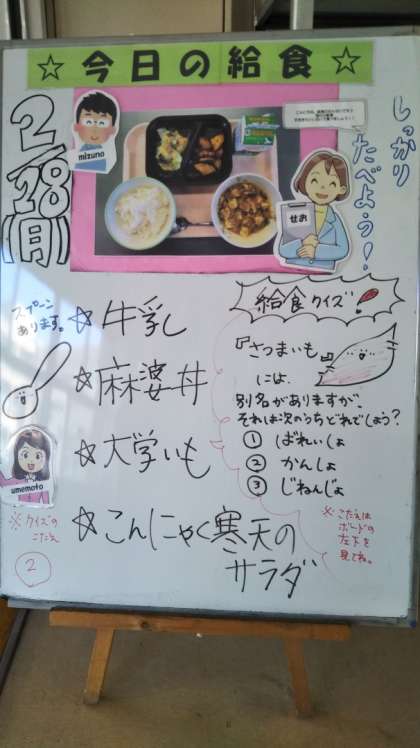 ☆今日の給食☆
2/28(月)
mizuno
しっかり
たべよう!
せお
スプーン
あります。
☆牛乳
☆麻婆丼
☆大学いも
☆こんにゃく寒天の
サラダ
給食クイズ!
『さつまいも』
には
別名がありますが、
それは次のうちどれでしょう?
① ばれいしょ
② かんしょ
③ じねんじょ
※こたえは
ボードの
左下を
見てね。
umemoto
※クイズの
こたえ
②